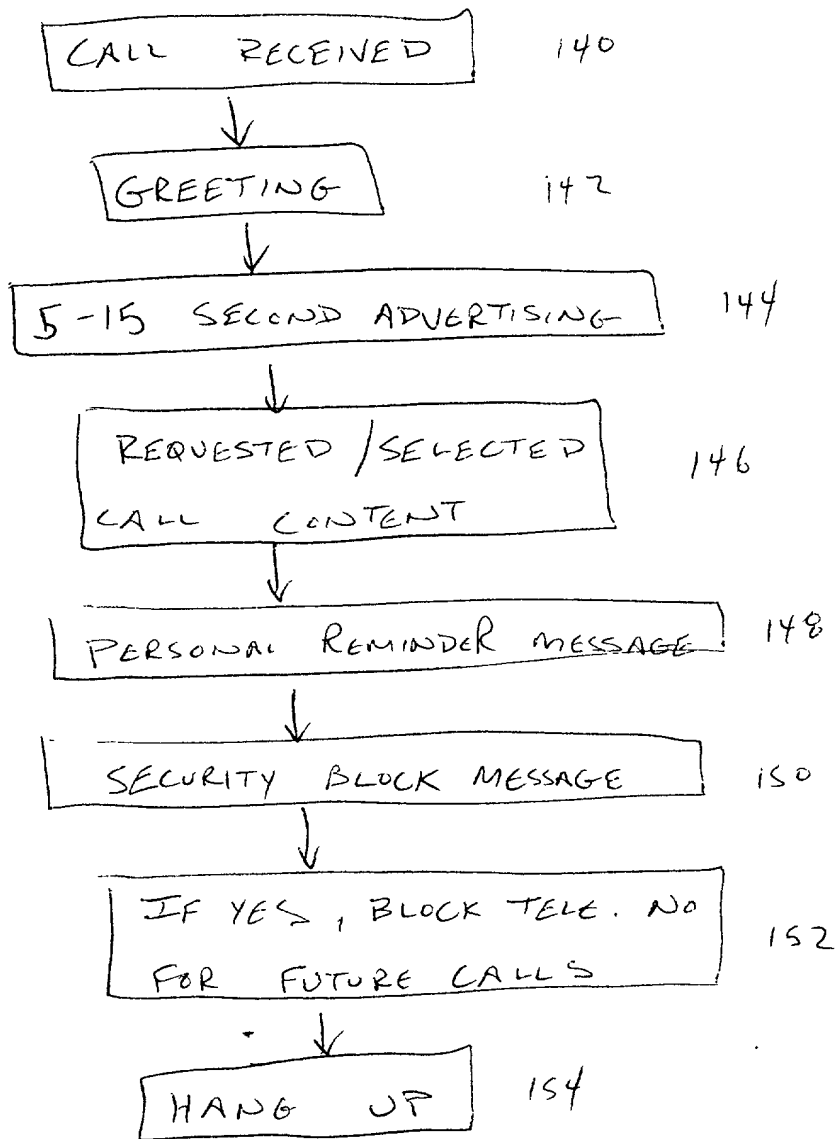 CALL RECEIVED 140
GREETING 142
5-15 SECOND ADVERTISING 144
REQUESTED/SELECTED
CALL CONTENT 146
PERSONAL REMINDER MESSAGE 148
SECURITY BLOCK MESSAGE 150
IF YES, BLOCK TELE. NO
FOR FUTURE CALLS 152
HANG UP 154